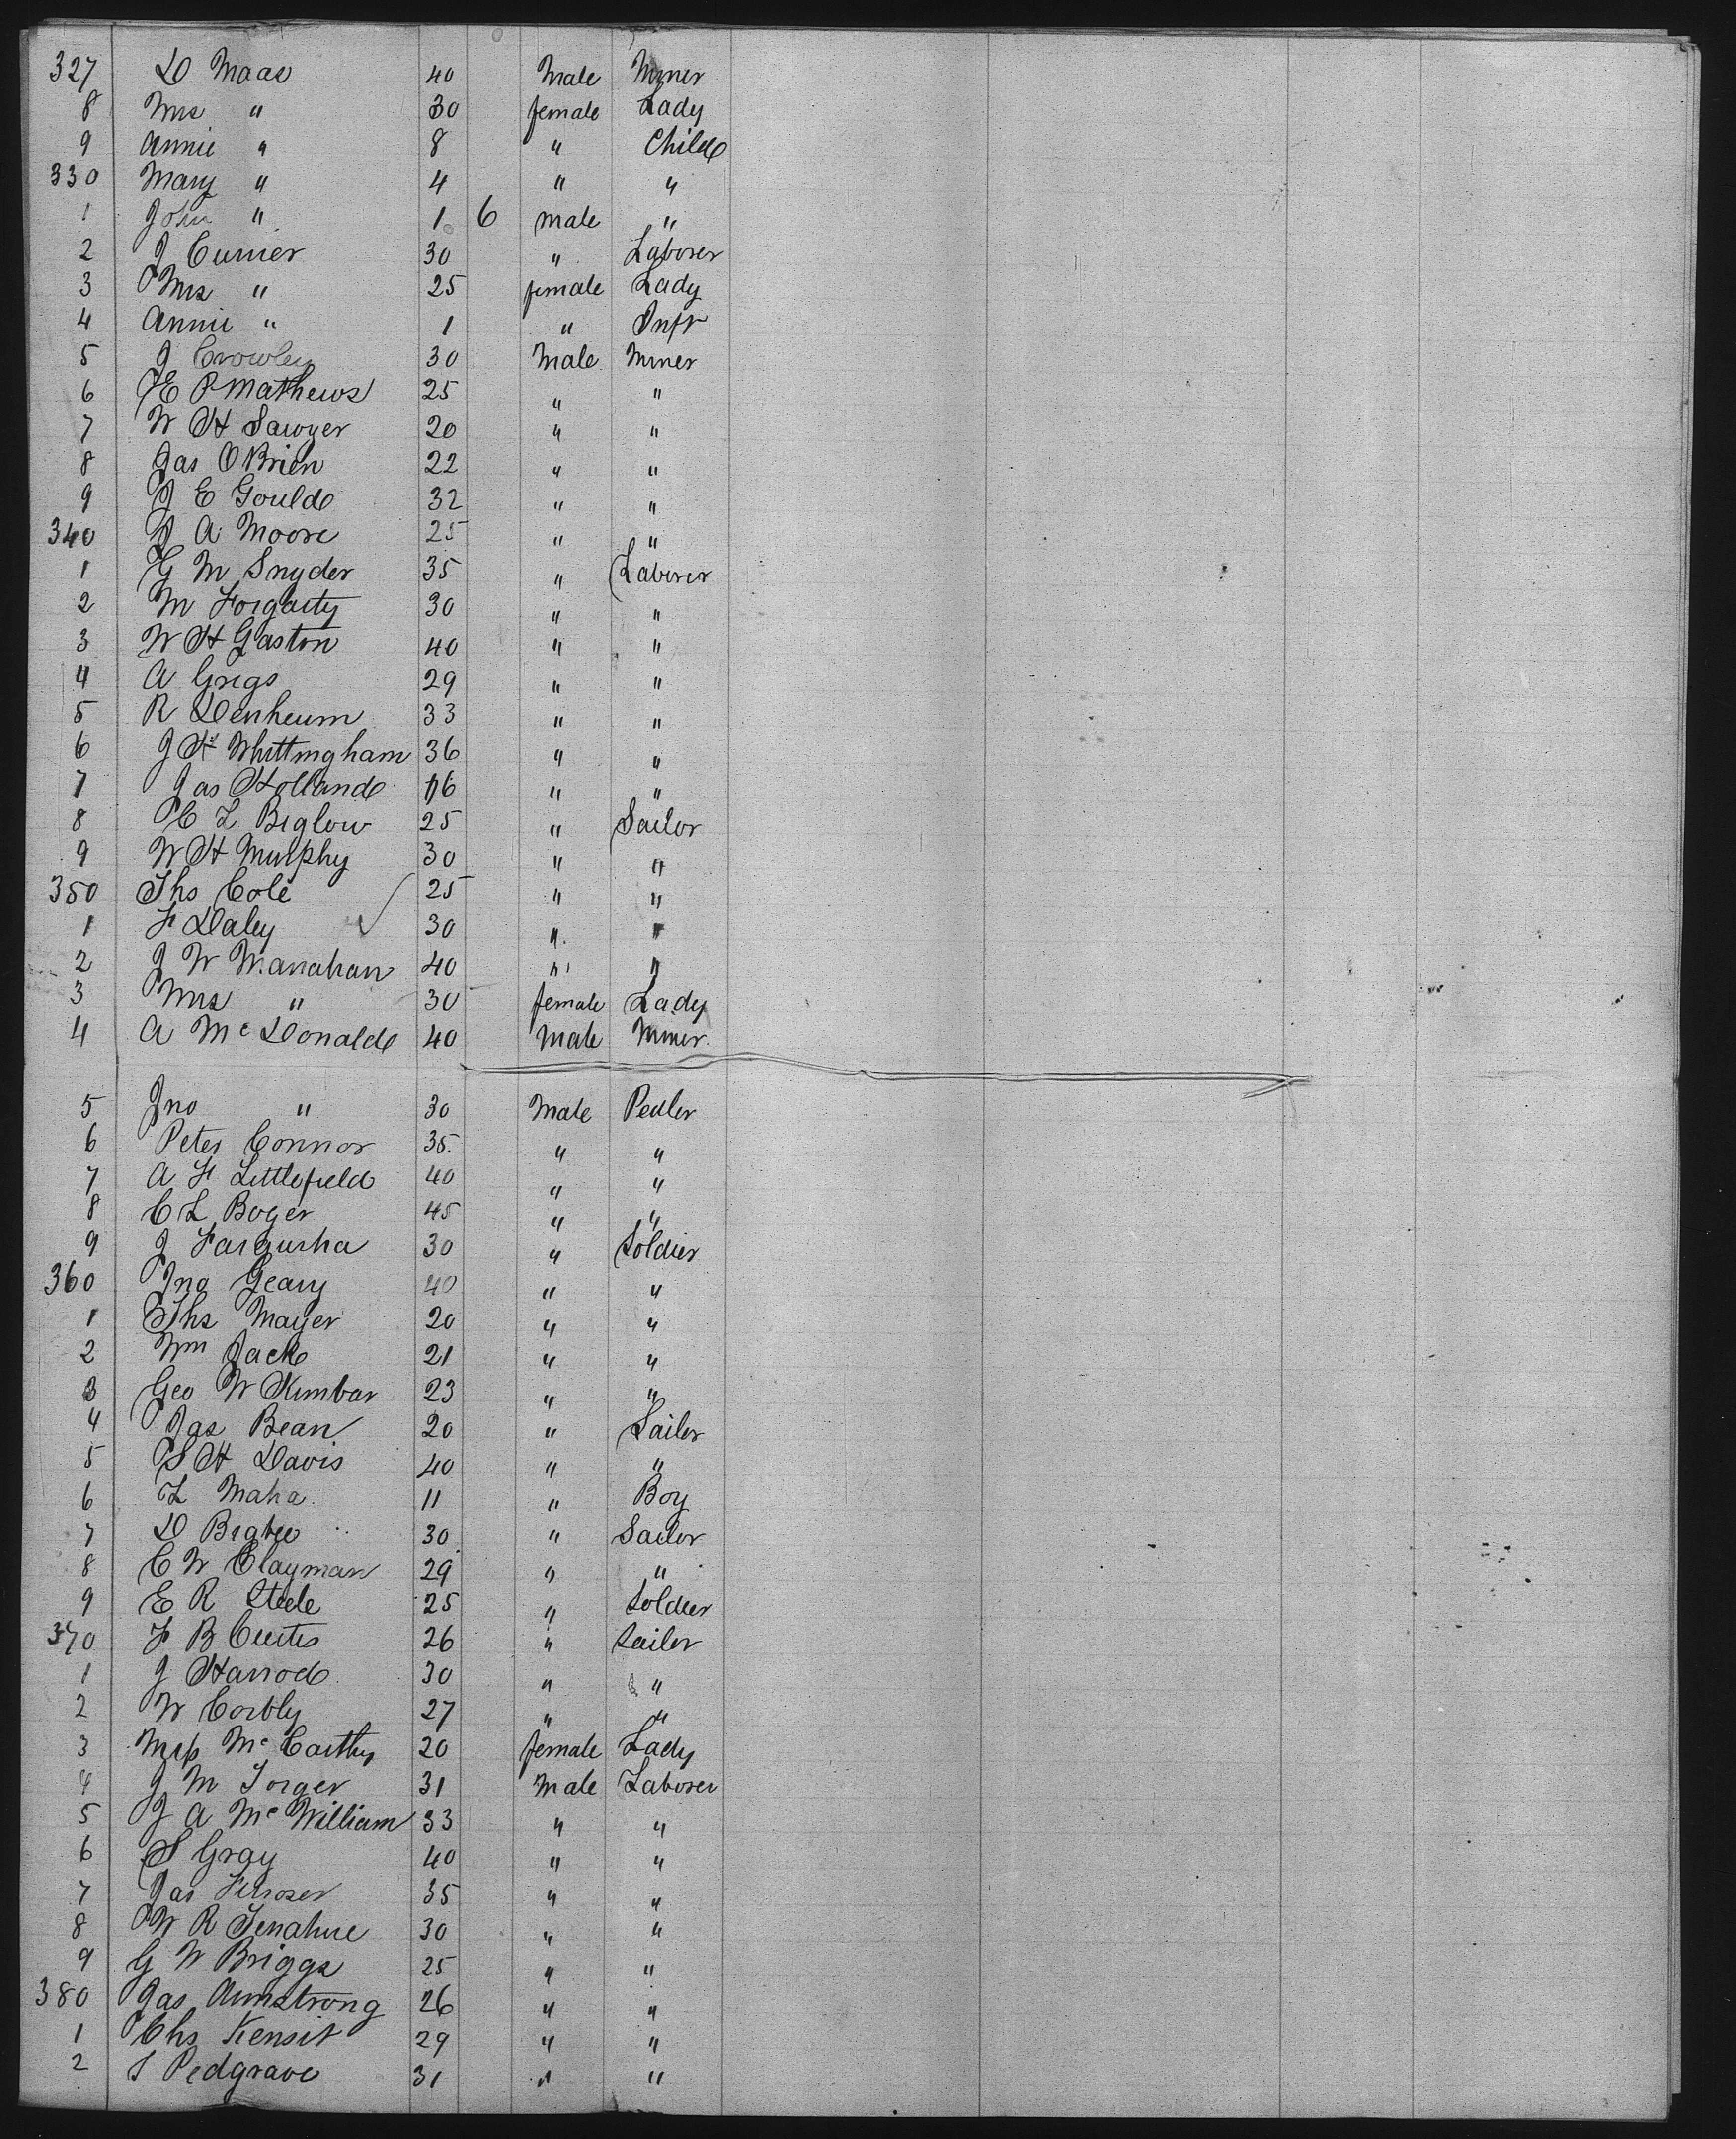 327 D Maas 40 Male Miner
8 Mrs " 30 female Lady
9 Annie " 8 " Child
330 Mary " 4 " "
1 John " 1 6 male "
2 J Currier 30 " Laborer
3 Mrs " 25 female Lady
4 Annie " 1 " Inft
5 J Crowley 30 Male Miner
6 E P Mathews 25 " "
7 W H Sawyer 20 " "
8 Jas OBrien 22 " "
9 J E Gould 32 " "
340 J A Moore 25 " "
1 G M Snyder 35 " Laborer
2 M Forgarty 30 " "
3 W H Gaston 40 " "
4 A Grigs 29 " "
5 R Denheum 33 " "
6 J H Whittingham 36 " "
7 Jas Holland " "
8 C L Biglow 25 " Sailor
9 W H Murphy 30 " "
350 Ths Cole 25 " "
1 F Daley 30 " "
2 J W Manahan 40 " "
3 Mrs " 30 female Lady
4 A Mc Donald 40 Male Miner
5 Jno " 30 Male Pedler
6 Peter Connor 35. " "
7 A F Littlefield 40 " "
8 C L Boyer 45 " "
9 J Fargusha 30 " Soldier
360 Jno Geary 40 " "
1 Ths Mayer 20 " "
2 Wm Jack 21 " "
3 Geo W Kimbar 23 " "
4 Jas Bean 20 " Sailor
5 S H Davis 40 " "
6 L Maha 11 " Boy
7 D 30 " Sailor
8 C W Clayman 29 " "
9 E R Steele 25 " Soldier
370 F B Curtis 26 " Sailor
1 J Harrod 30 " "
2 W Corbly 27 " "
3 Miss Mc Carthy 20 female Lady
4 J M 31 Male Laborer
5 J A Mc William 33 " "
6 S Gray 40 " "
7 Jas 35 " "
8 W R 30 " "
9 G W Briggs 25 " "
380 Jas Armstrong 26 " "
1 Chs Kensit 29 " "
2 Pedgrave 31 " "